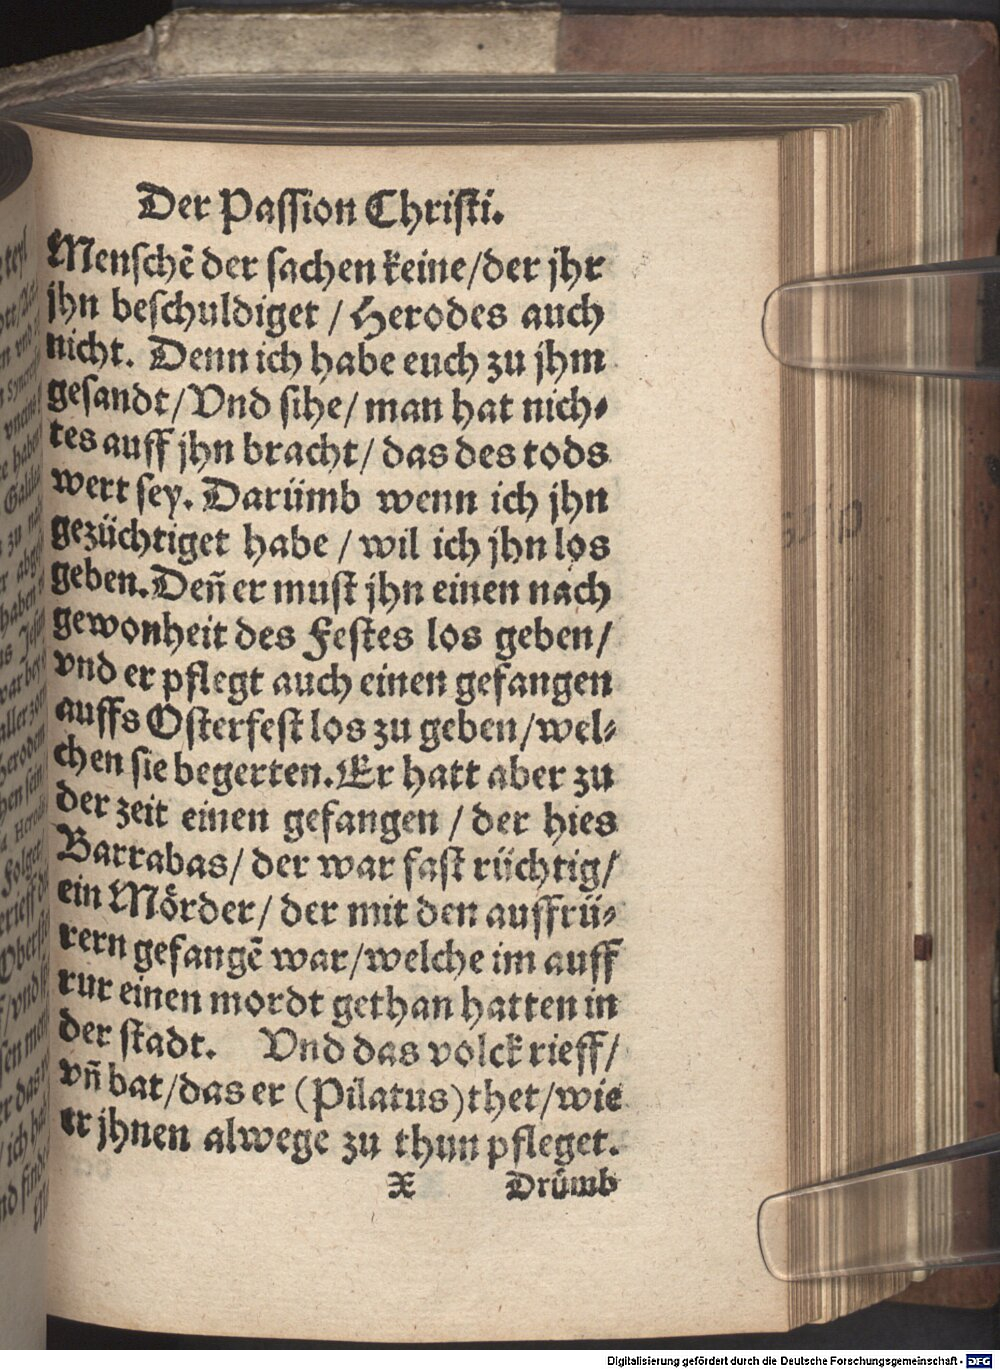 Der Passion Christi.
Menschẽ der sachen keine/der jhr
jhn beschuldiget / Herodes auch
nicht. Denn ich habe euch zu jhm
gesandt/Vnd sihe/ man hat nich⸗
tes auff jhn bracht/ das des tods
wert sey. Darümb wenn ich jhn
gezüchtiget habe / wil ich jhn los
geben. Deñ er must jhn einen nach
gewonheit des Festes los geben/
vnd er pflegt auch einen gefangen
auffs Osterfest los zu geben/wel⸗
chen sie begerten. Er hatt aber zu
der zeit einen gefangen / der hies
Barrabas/ der war fast rüchtig/
ein Mörder/ der mit den auffrü⸗
rern gefangẽ war/welche im auff
rur einen mordt gethan hatten in
der stadt. Vnd das volck rieff/
vñ bat/das er (Pilatus) thet/wie
er jhnen alwege zu thun pfleget.
X Drümb
Digitalisierung gefördert durch die Deutsche Forschungsgemeinschaft - DFG